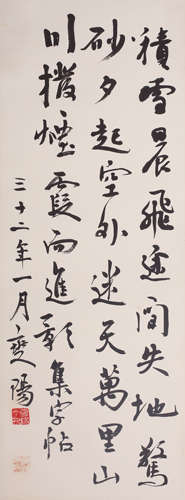 積雪晨飛途間失地驚
砂夕起空外迷天萬里山
川撥煙霞而進影集字帖
三十二年一月陽